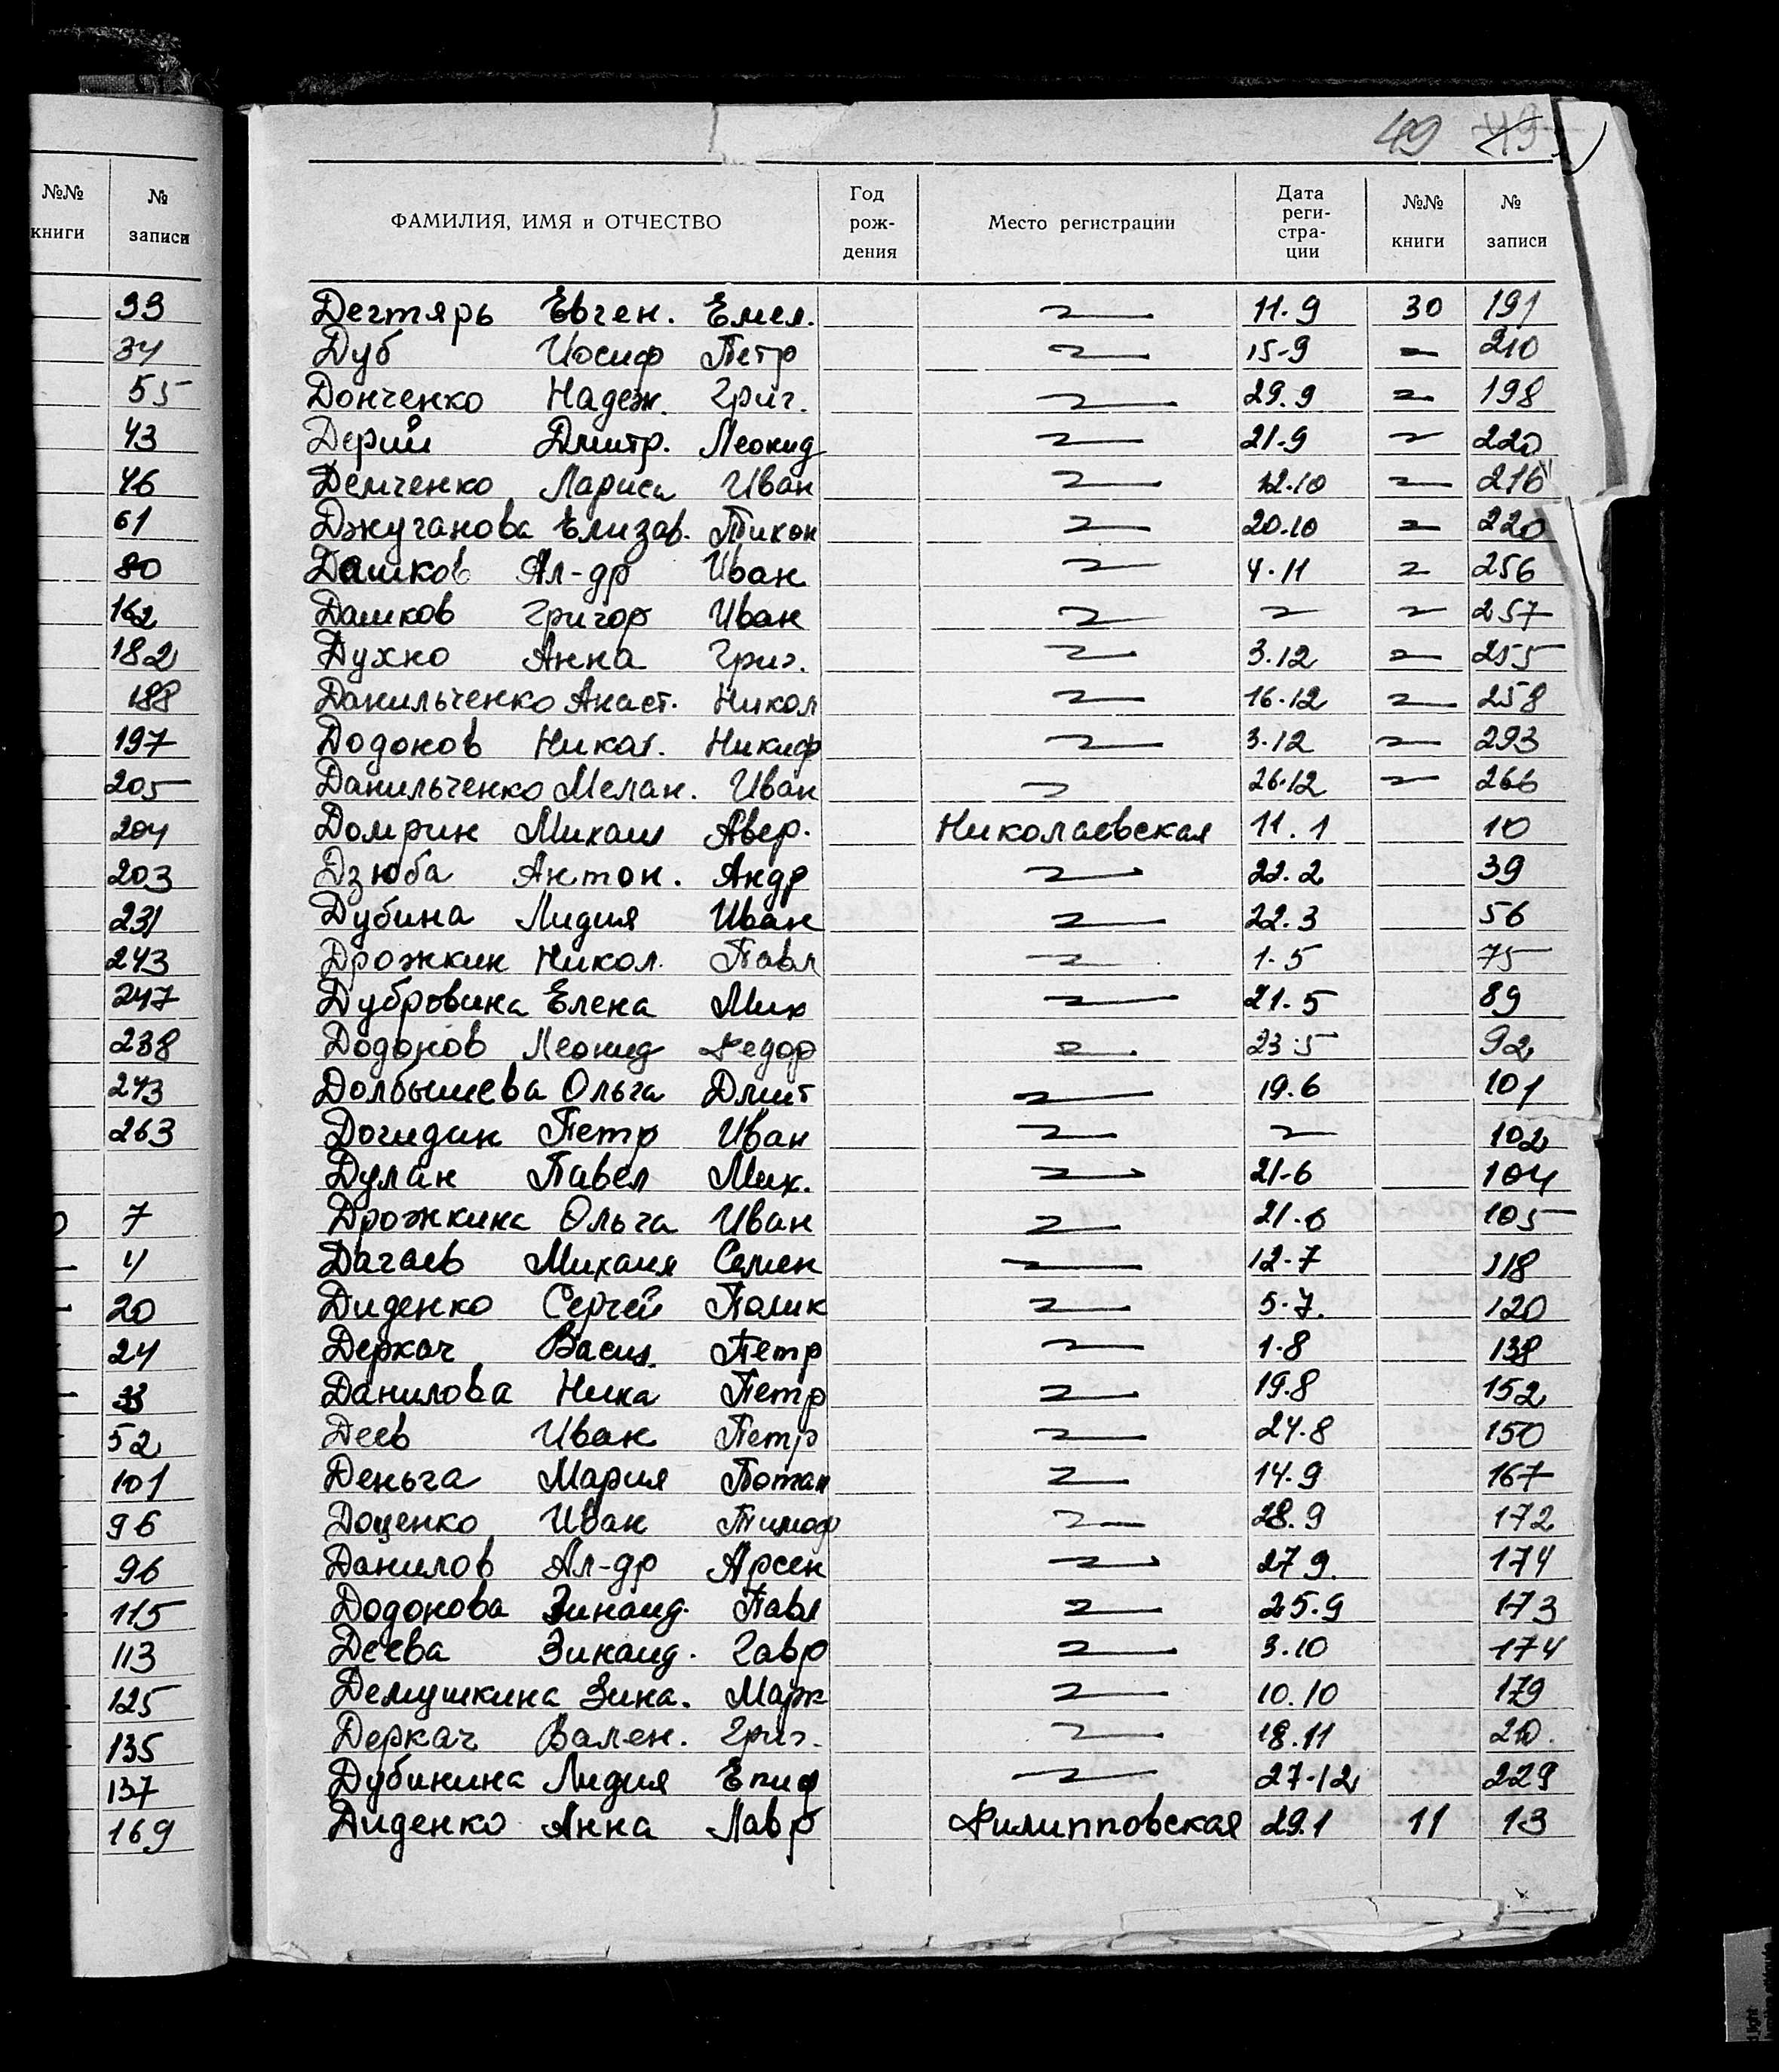 49 49
№№ книги № записи
99
34
55
43
46
61
80
162
182
188
197
205
204
203
231
243
247
238
243
263
7
4
20
24
33
52
101
96
96
115
113
125
135
137
169
ФАМИЛИЯ, ИМЯ и ОТЧЕСТВО Год рож-дения Место регистрации Дата реги-стра-ции №№ книги № записи
Дегтярь Евген. Емел. 〃 11.9 30 191
Дуб Иосиф Петр 〃 15-9 〃 210
Донченко Надеж. Григ. 〃 29.9 〃 198
Дерий Дмитр. Леонид 〃 21.9 〃 220
Демченко Лариса Иван 〃 12.10 〃 216
Джуганова Елизав. Тихон 〃 20.10 〃 220
Дашков Ал-др Иван 〃 4.11 〃 256
Дашков Григор Иван 〃 〃 〃 257
Духно Анна Григ. 〃 3.12 〃 255
Данильченко Анаст. Никол 〃 16.12 〃 258
Додонов Никол. Никиф 〃 3.12 〃 293
Данильченко Мелан. Иван 〃 26.12 〃 266
Домрин Михаил Авер. Николаевская 11.1 10
Дзюба Антон. Андр 〃 22.2 39
Дубина Лидия Иван 〃 22.3 56
Дрожкин Никол. Павл 〃 1.5 75
Дубровина Елена Мих 〃 21.5 89
Додонов Леонид Федор 〃 23.5 92
Долбышева Ольга Дмит 〃 19.6 101
Догидин Петр Иван 〃 〃 102
Дулан Павел Мих. 〃 21-6 104
Дрожкина Ольга Иван 〃 21.6 105
Дагаев Михаил Семен 〃 12.7 118
Диденко Сергей Полик 〃 5.7. 120
Деркач Васил. Петр 〃 1.8 138
Данилова Нина Петр 〃 19.8 152
Деев Иван Петр 〃 24.8 150
Деньга Мария Потап 〃 14.9 167
Доценко Иван Тимоф 〃 28.9 172
Данилов Ал-др Арсен 〃 27 9. 174
Додонова Зинаид. Павл 〃 25.9 173
Деева Зинаид. Гавр 〃 3.10 174
Демушкина Зина. Марк 〃 10.10 179
Деркач Вален. Григ. 〃 18.11 210.
Дубинина Лидия Епиф 〃 27.12 229
Диденко Анна Лавр Филипповская 29.1 11 13